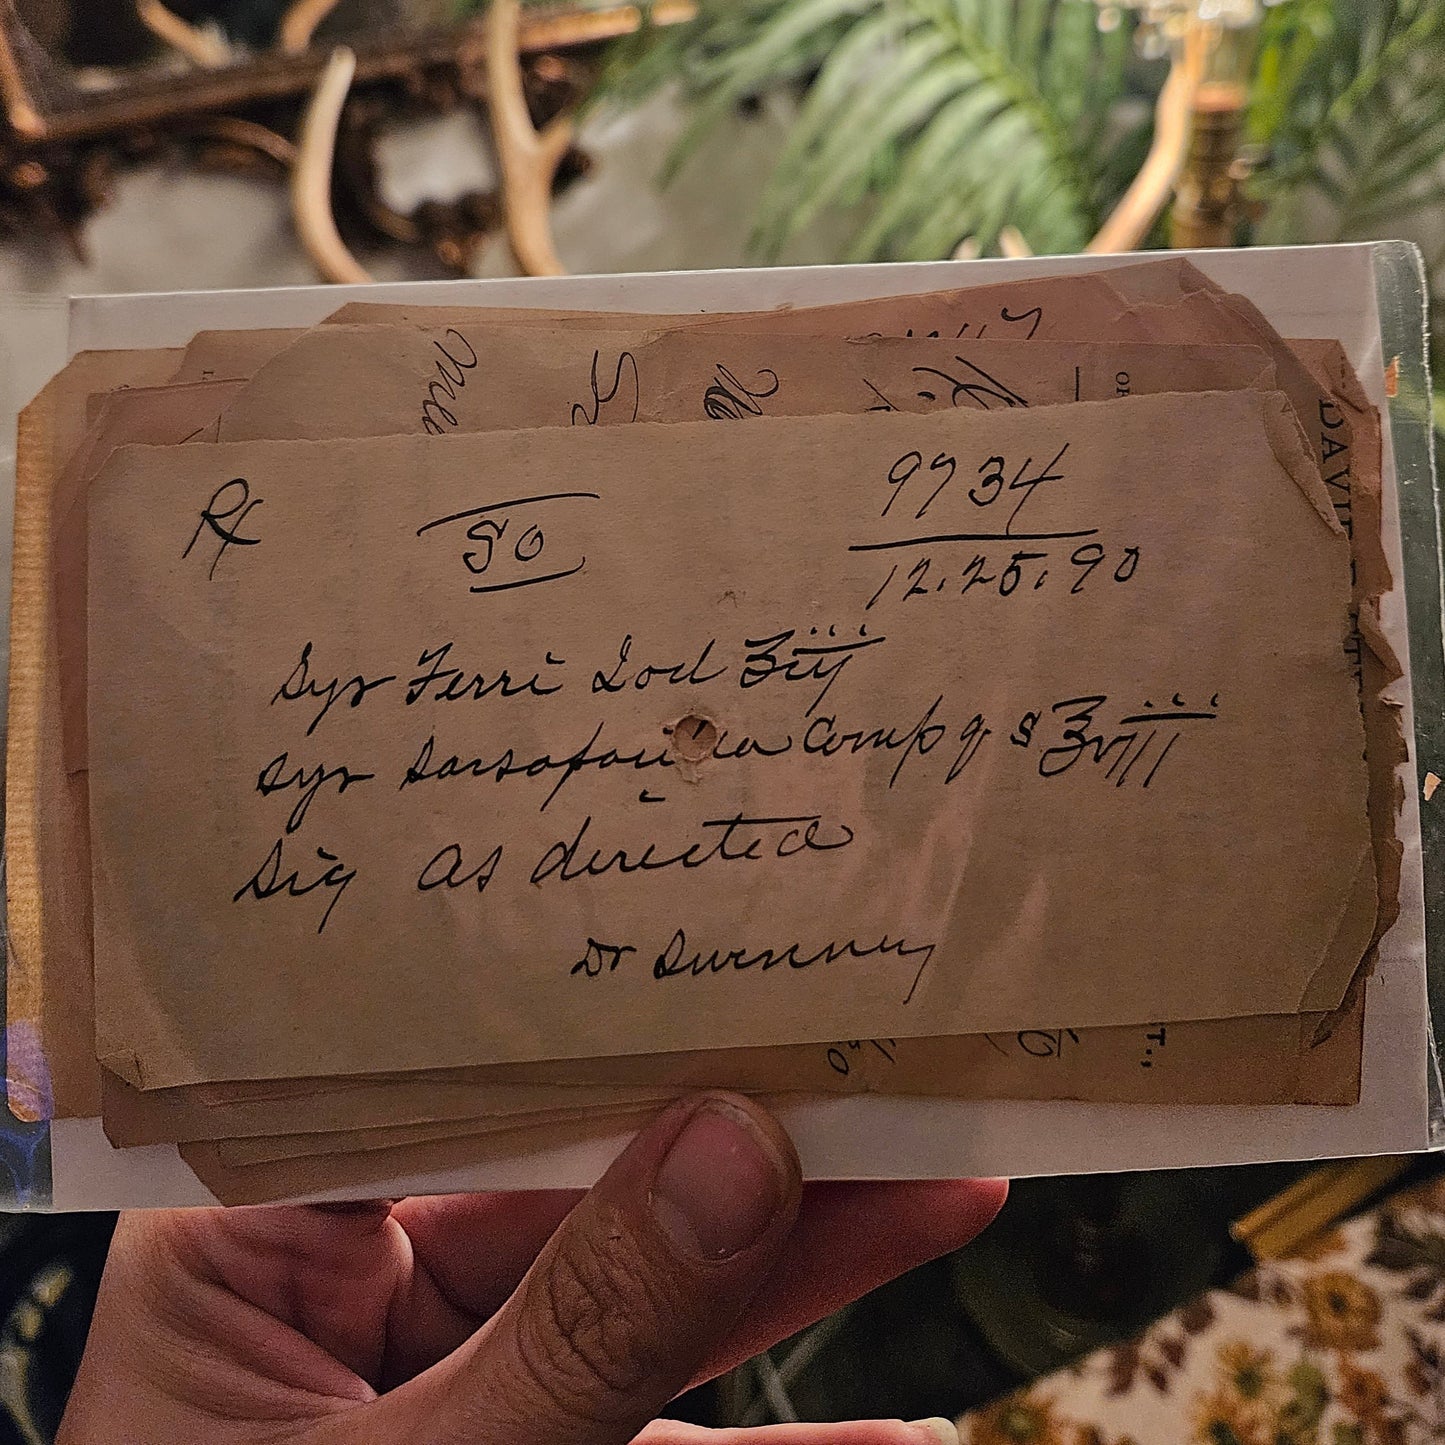 OF
DAVI
Rx 50 9734
12.25.90
Syr Ferri Iod ℥iij
Syr Sarsaparilla Comp q s ℥viii
Sig As directed
Dr Swenney
T.,